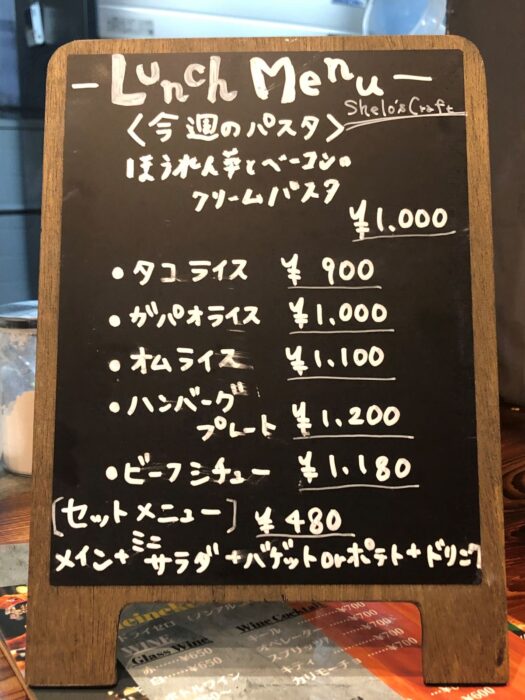 Lunch Menu
Shelo's Craft
〈今週のパスタ〉
ほうれん草とベーコンの
クリームパスタ
¥1.000
・タコライス ¥900
・ガパオライス ¥1.000
・オムライス ¥1.100
・ハンバーグ
プレート ¥1.200
・ビーフシチュー ¥1.180
[セットメニュー] ¥480
メイン+ミニサラダ+バゲットorポテト+ドリンク
Heineken
WINE
Glass Wine
Wine Cocktail
キール
オペレーター
カリモーチョ
¥700
¥700
¥700
¥650